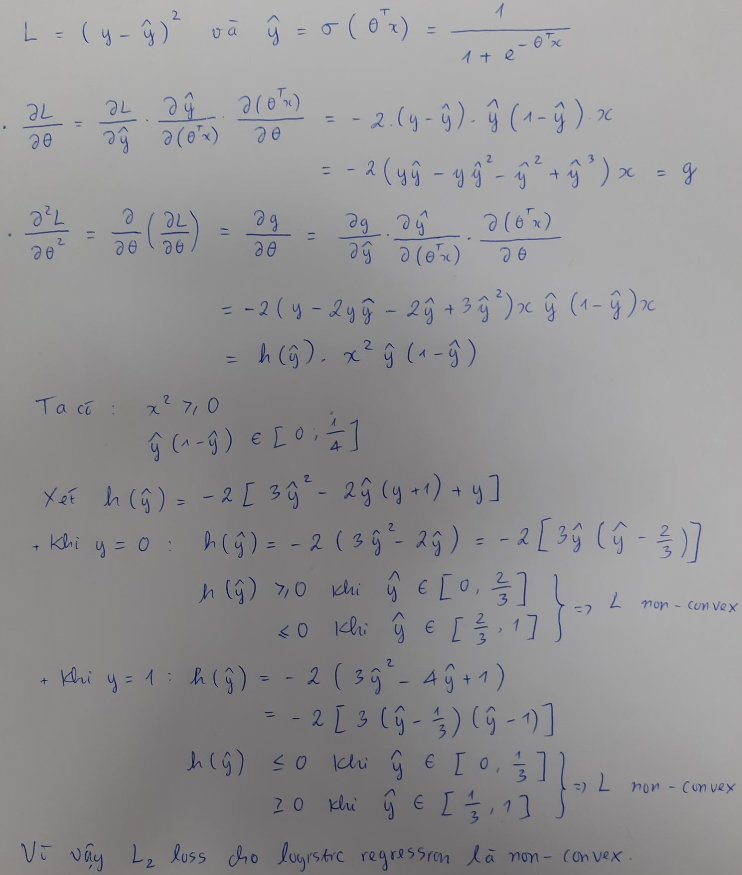 L = (y - ŷ)² và ŷ = σ(θᵀx) = 1 / (1 + e^(-θᵀx))
· ∂L/∂θ = ∂L/∂ŷ · ∂ŷ/∂(θᵀx) · ∂(θᵀx)/∂θ = - 2.(y - ŷ). ŷ (1 - ŷ). x
= - 2 (yŷ - yŷ² - ŷ² + ŷ³) x = g
· ∂²L/∂θ² = ∂/∂θ (∂L/∂θ) = ∂g/∂θ = ∂g/∂ŷ · ∂ŷ/∂(θᵀx) · ∂(θᵀx)/∂θ
= -2 (y - 2yŷ - 2ŷ + 3ŷ²) x ŷ (1 - ŷ) x
= h(ŷ). x² ŷ (1 - ŷ)
Ta có : x² ≥ 0
ŷ (1 - ŷ) ∈ [0; 1/4]
Xét h(ŷ) = -2 [3ŷ² - 2ŷ (y + 1) + y]
+ Khi y = 0 : h(ŷ) = -2 (3ŷ² - 2ŷ) = -2 [3ŷ (ŷ - 2/3)]
h(ŷ) ≥ 0 khi ŷ ∈ [0, 2/3]
≤ 0 khi ŷ ∈ [2/3, 1] } => L non-convex
+ Khi y = 1 : h(ŷ) = -2 (3ŷ² - 4ŷ + 1)
= -2 [3 (ŷ - 1/3) (ŷ - 1)]
h(ŷ) ≤ 0 khi ŷ ∈ [0, 1/3]
≥ 0 khi ŷ ∈ [1/3, 1] } => L non-convex
Vì vậy L₂ loss cho logistic regression là non-convex.